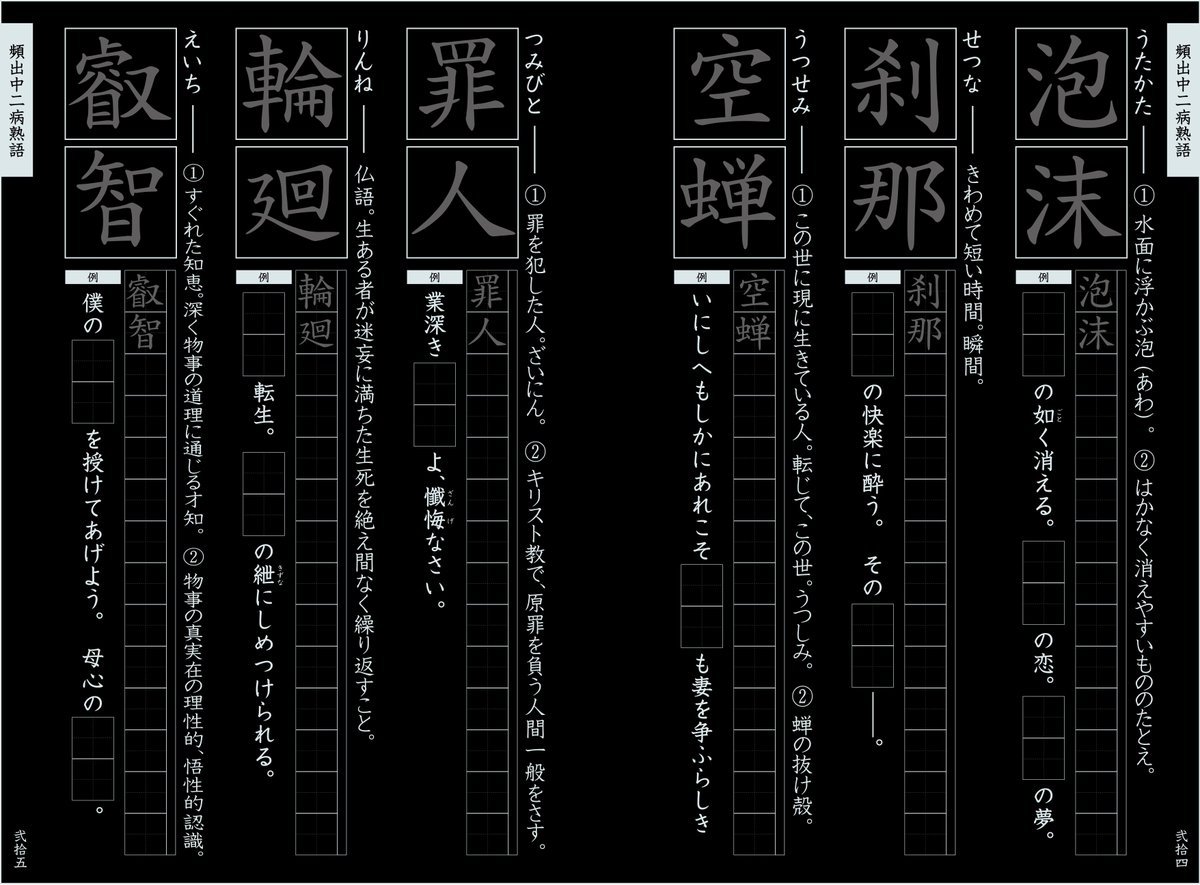 頻出中二病熟語
うたかた──① 水面に浮かぶ泡(あわ)。 ② はかなく消えやすいもののたとえ。
泡沫
泡沫
例
の如く消える。 の恋。 の夢。
ごと
せつな──きわめて短い時間。瞬間。
刹那
刹那
例
の快楽に酔う。 その ──。
うつせみ──① この世に現に生きている人。転じて、この世。うつしみ。 ② 蝉の抜け殻。
空蝉
空蝉
例
いにしへもしかにあれこそ も妻を争ふらしき
弐拾四
つみびと──① 罪を犯した人。ざいにん。 ② キリスト教で、原罪を負う人間一般をさす。
罪人
罪人
例
業深き よ、懺悔なさい。
ざんげ
りんね──仏語。生ある者が迷妄に満ちた生死を絶え間なく繰り返すこと。
輪廻
輪廻
例
転生。 の紲にしめつけられる。
きずな
えいち──① すぐれた知恵。深く物事の道理に通じる才知。 ② 物事の真実在の理性的、悟性的認識。
叡智
叡智
例
僕の を授けてあげよう。 母心の 。
頻出中二病熟語
弐拾五